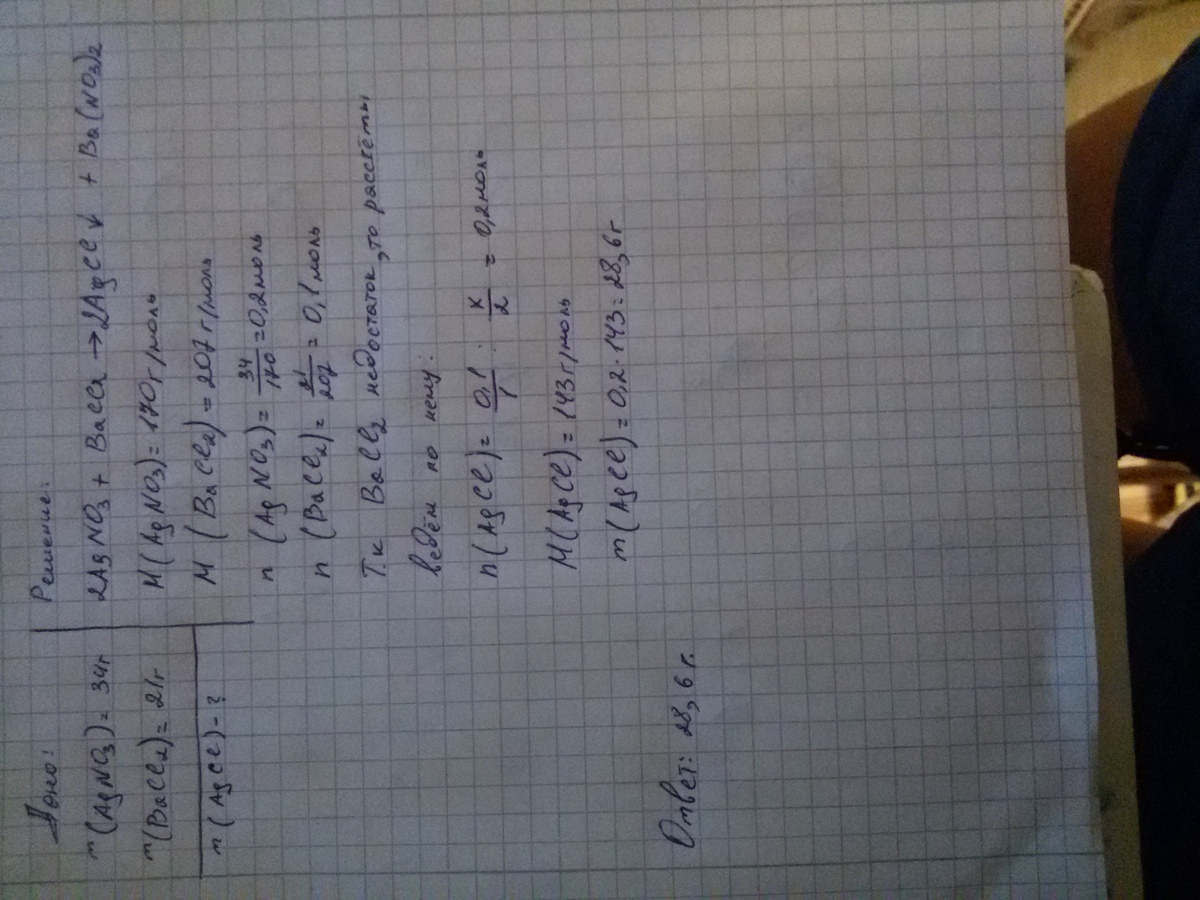 Дано:
m(AgNO3)= 34г
m(BaCl2)= 21г
m(AgCl)-?
Решение:
2AgNO3 + BaCl2 → 2AgCl↓ + Ba(NO3)2
M(AgNO3)=170г/моль
M(BaCl2)=207г/моль
n(AgNO3)= 34/170=0,2моль
n(BaCl2)= 21/207= 0,1моль
Т.к BaCl2 недостаток, то рассчёты
ведём по нему:
n(AgCl)= 0,1/1 : x/2 = 0,2моль
M(AgCl)=143г/моль
m(AgCl)=0,2·143=28,6г
Ответ: 28,6г.